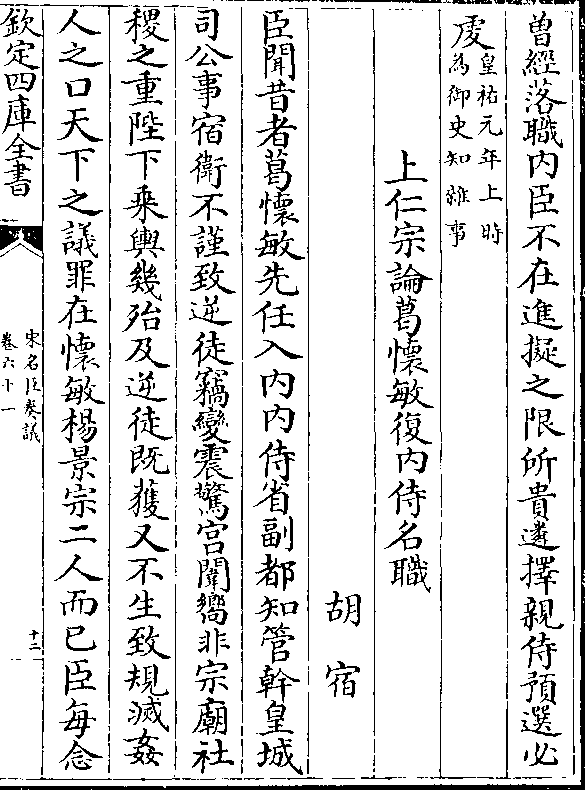 曽經落職内臣不在進擬之限所貴遴擇親侍預選必
䖏皇祐元年上時
為御史知雜事
上仁宗論葛懷敏復内侍名職
胡宿
臣聞昔者葛懷敏先任入内内侍省副都知管幹皇城
司公事宿衛不謹致逆徒竊變震驚宫闈嚮非宗廟社
稷之重陛下乘輿幾殆及逆徒既獲又不生致規滅姦
人之口天下之議罪在懷敏楊景宗二人而已臣每念
欽定四庫全書
宋名臣奏議
卷六十一
十二